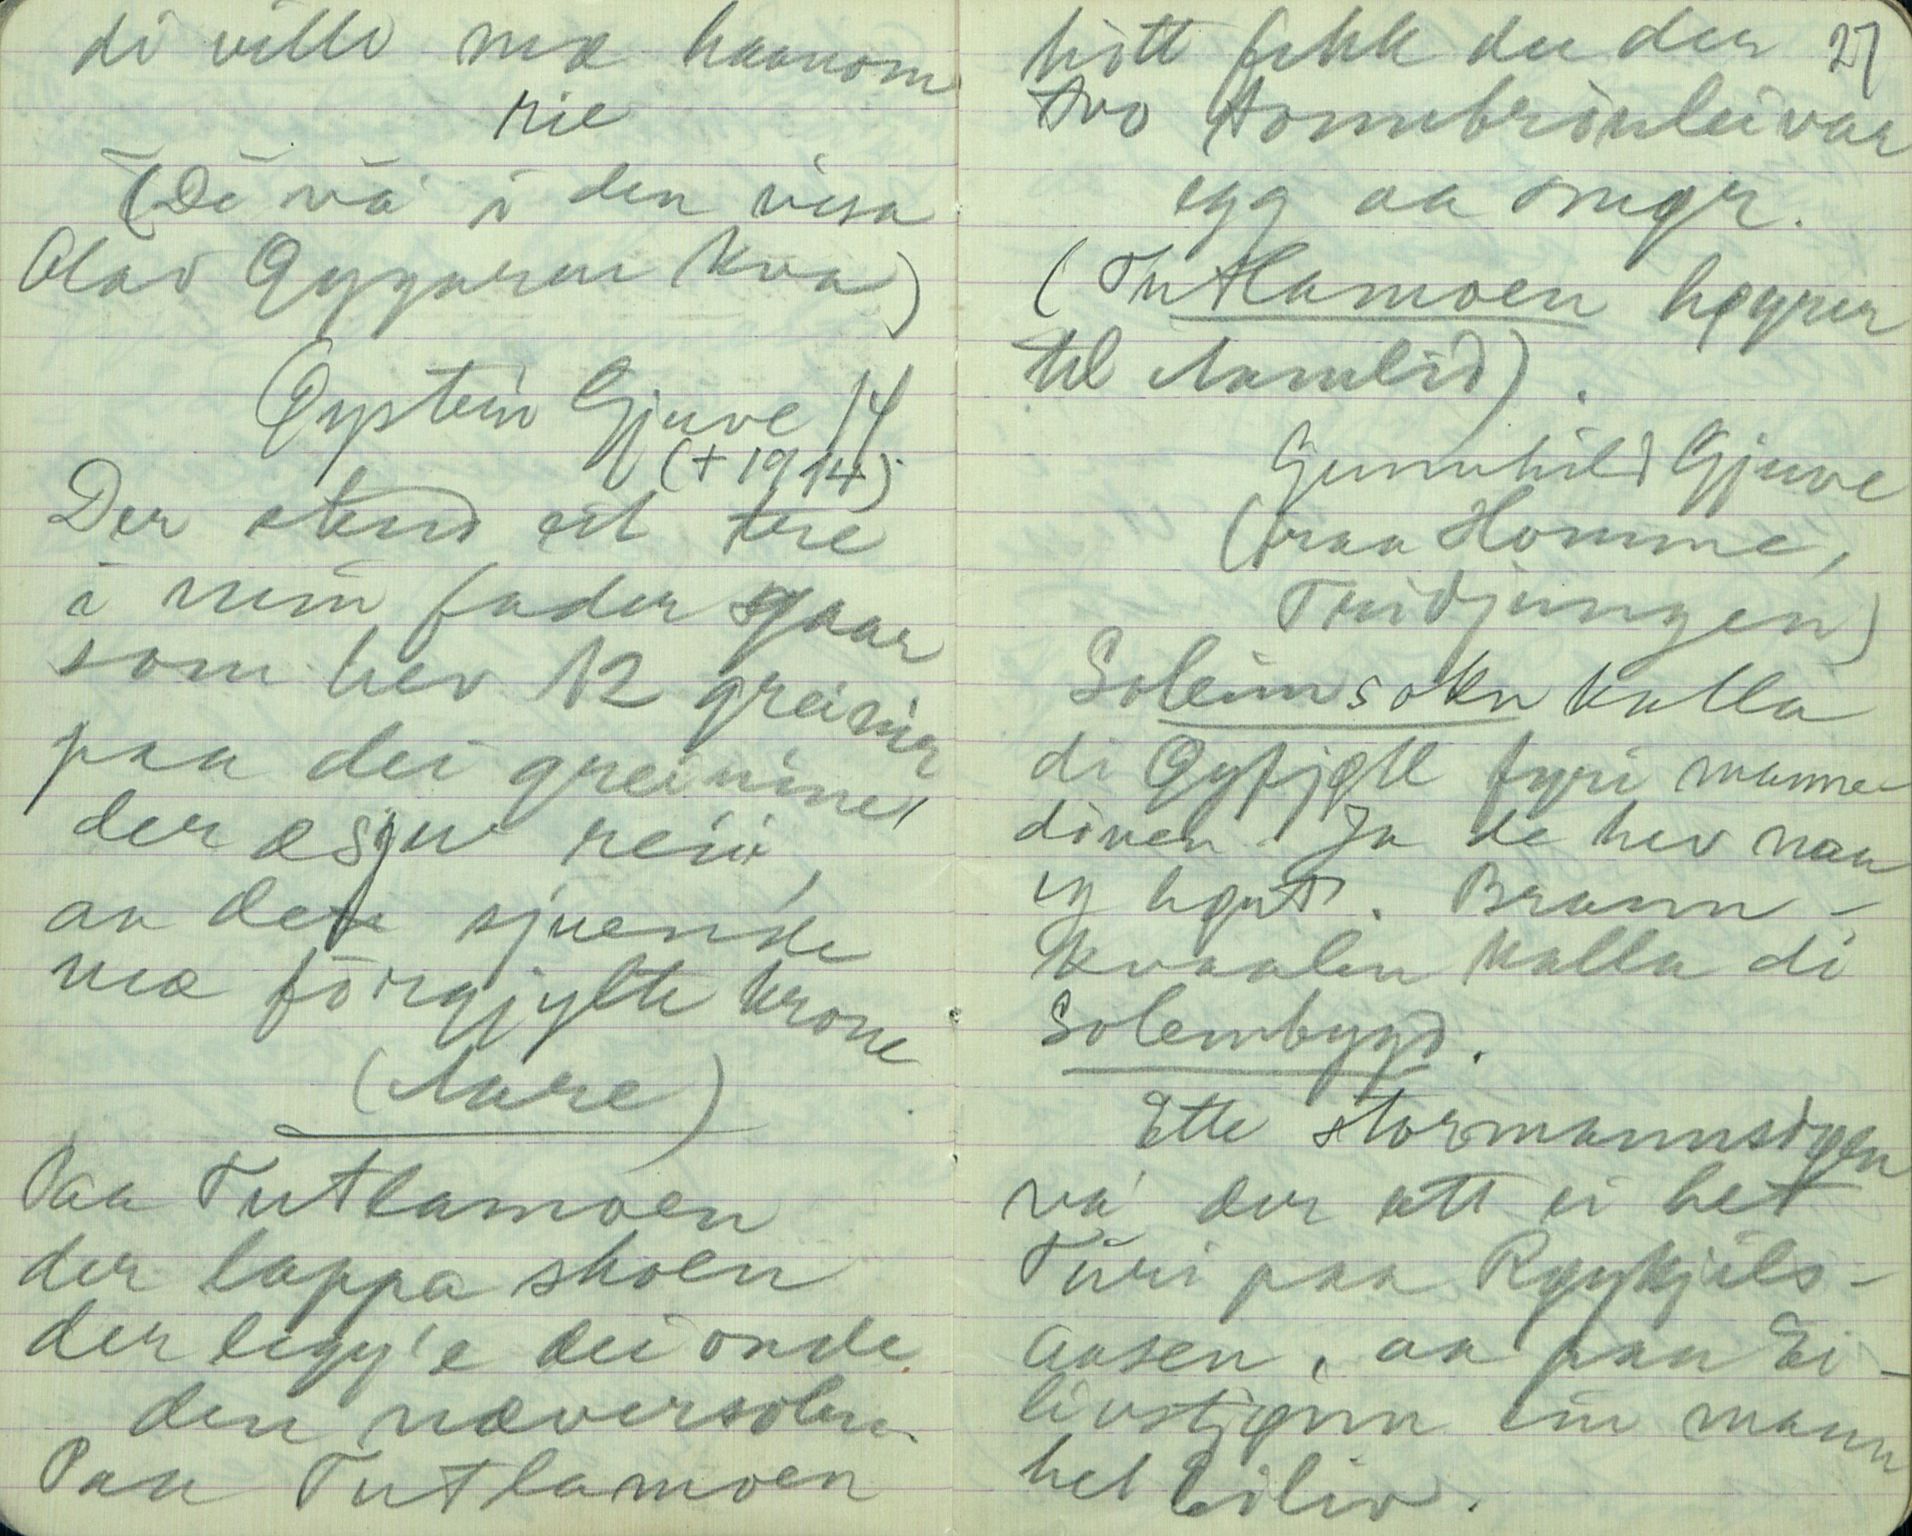 di ville mæ haanom
rie
(Di vá i den visa
Olav Gygaren kva)
Øystein Gjuve 14
(+ 1914)
Der stend eit tre
i min fader sgaar
som hev 12 greinir
paa dei greinine,
der æ sju reiir,
aa den sjuende
mæ førgjylte krone
(Aare)
Paa Tutlamoen
der lappa skoen
der legg'e dei onde
den næversolen.
Paa Tutlamoen
27
hitt fekk du den
tvo Homnbrønleivar
egg aa smør.
(Tutlamoen høyrer
til Aamlid).
Gunnhild Gjuve
(fraa Homme,
Tridjungen)
Soleimsokn kalla
di Øyfjøll fyri manne-
döuen. Ja de hev naa
eg høyrt. Brunn-
kvaalen kalla di
Solembygd.
Ette stormannsdøen
vá der att ei het
Turi paa Røykjils-
aasen, aa paa Ei-
livstjønn ein mann
het Eiliv.